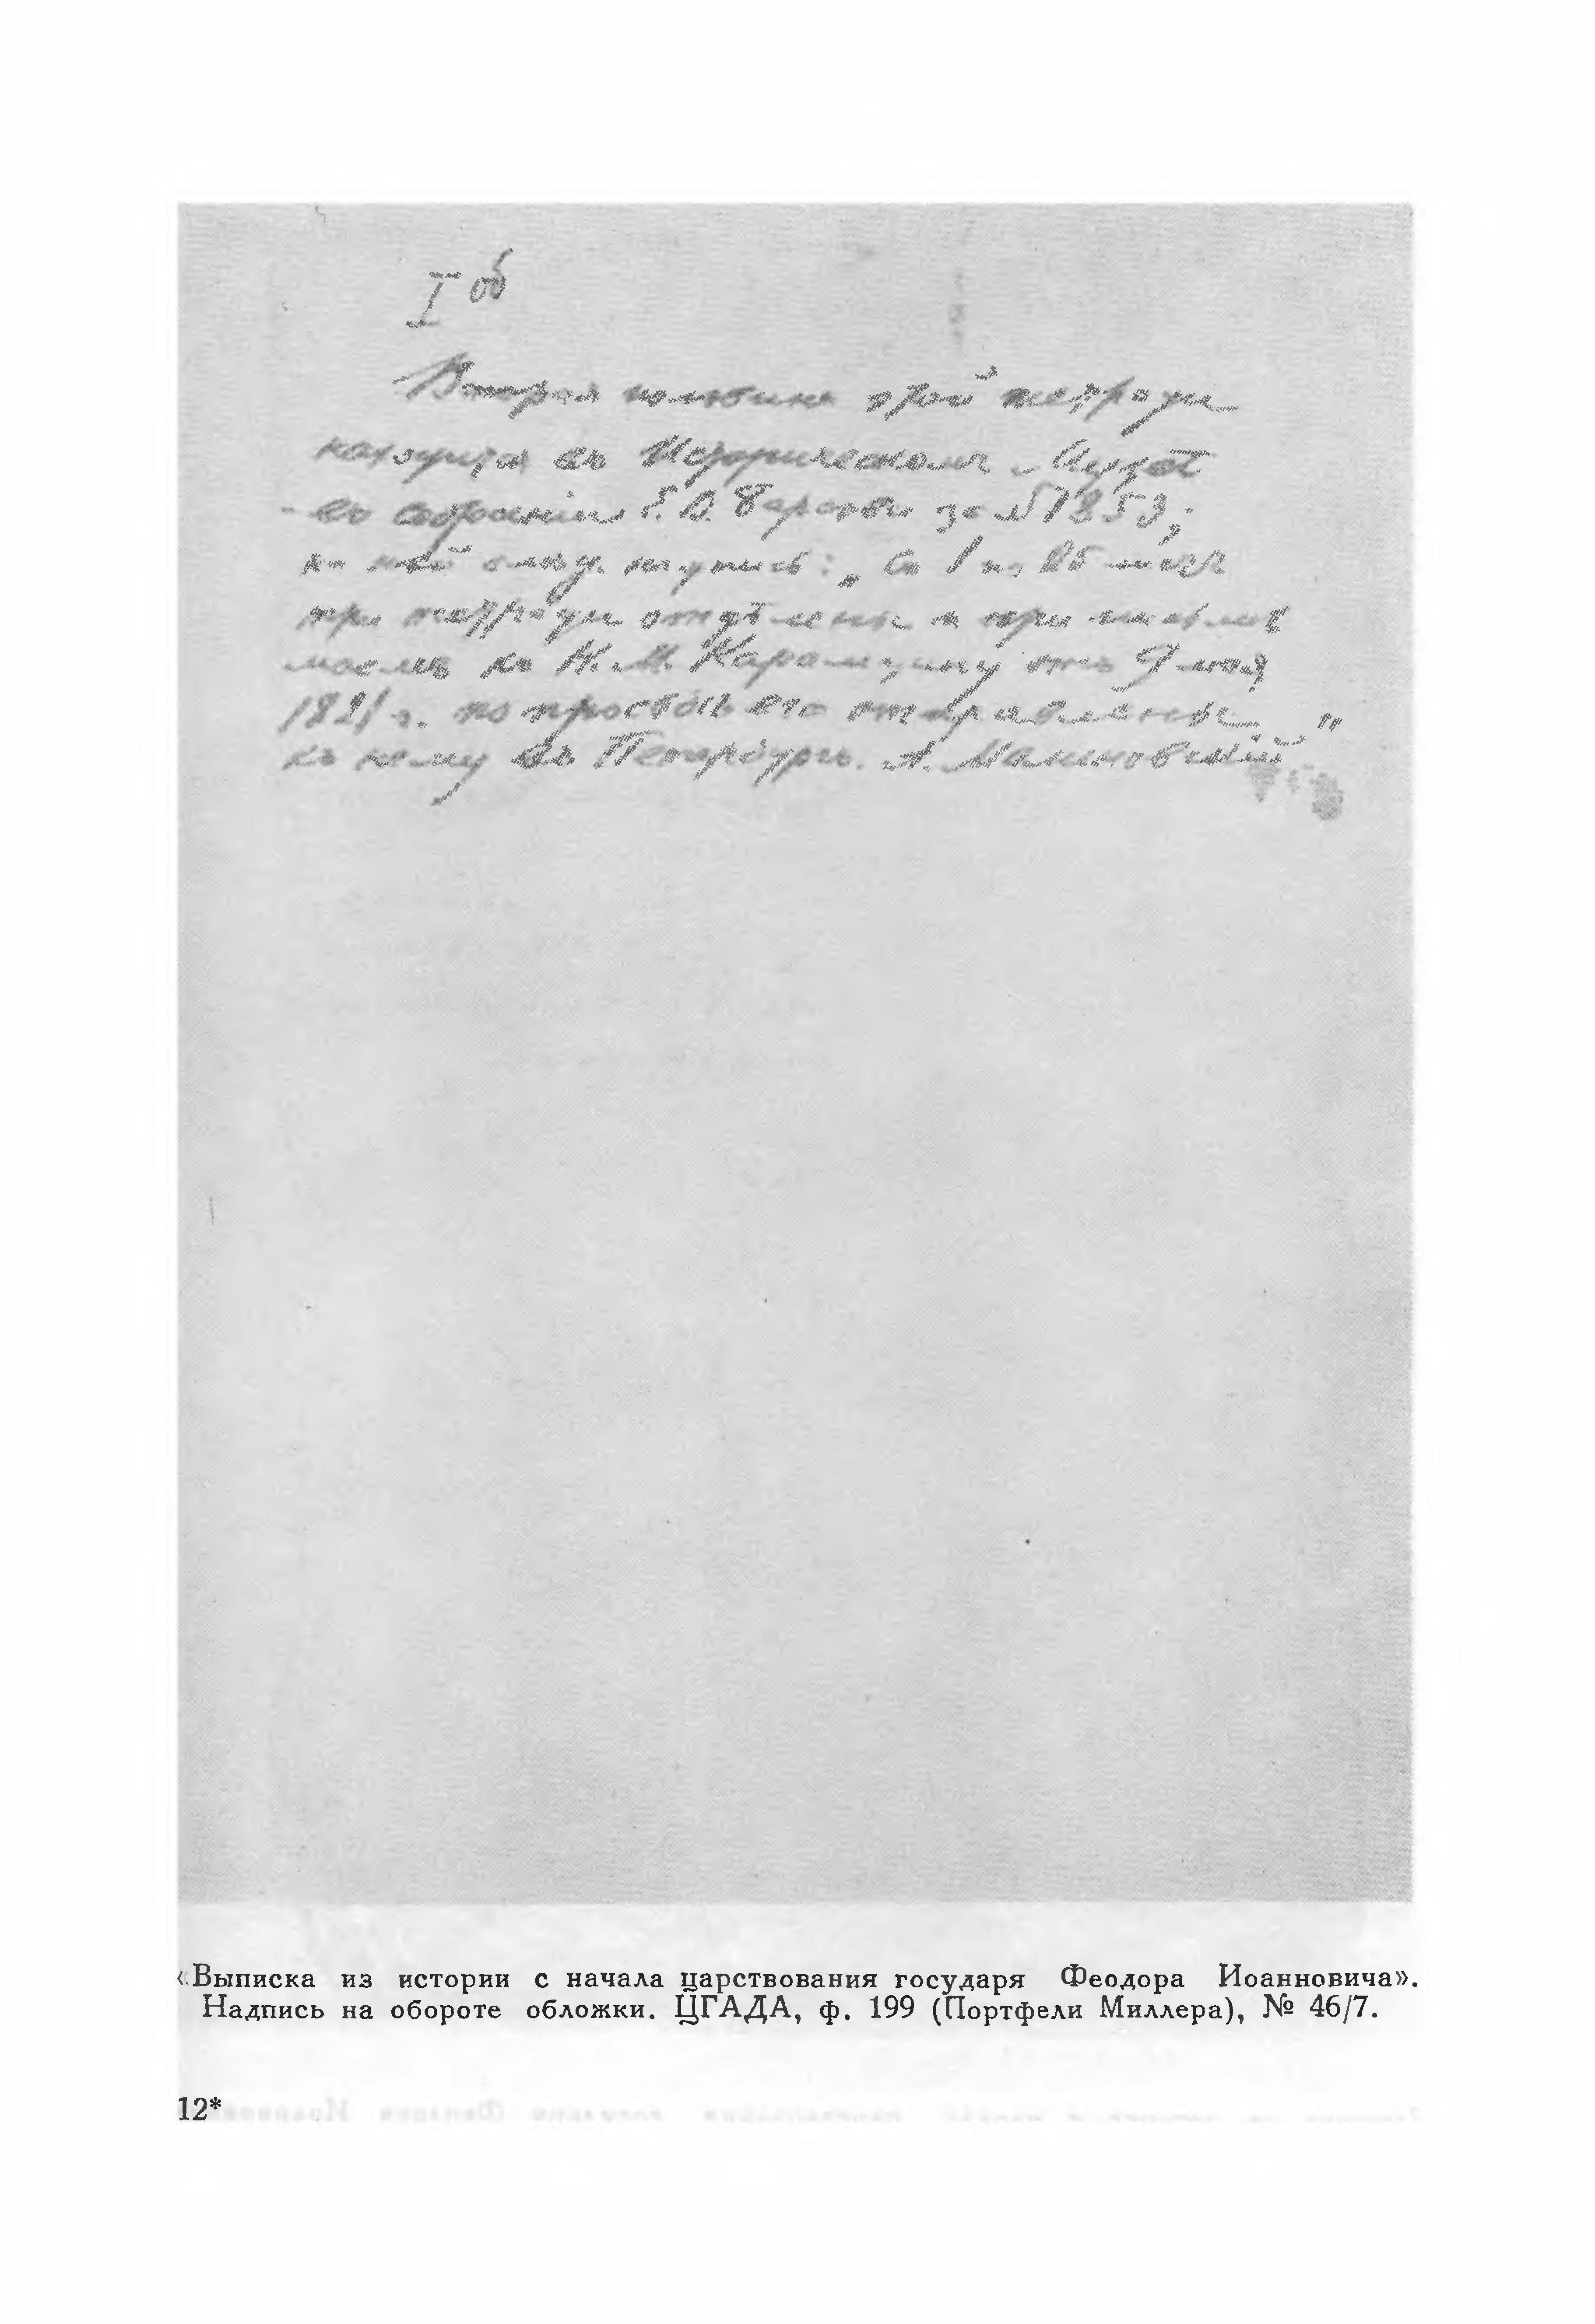 I об
Вторая половина этой тетради
находится въ Историческомъ Музеѣ
въ собраніи Е. В. Барсова за № 1853;
на ней надпись: „Съ 1 по 25
три тетради отдѣлены и при письмѣ
моемъ къ Н. М. Карамзину отъ 9 мая
1821 г. по просьбѣ его отправлены
къ нему въ Петербургъ. А. Малиновскій"
«Выписка из истории с начала царствования государя Феодора Иоанновича».
Надпись на обороте обложки. ЦГАДА, ф. 199 (Портфели Миллера), № 46/7.
12*